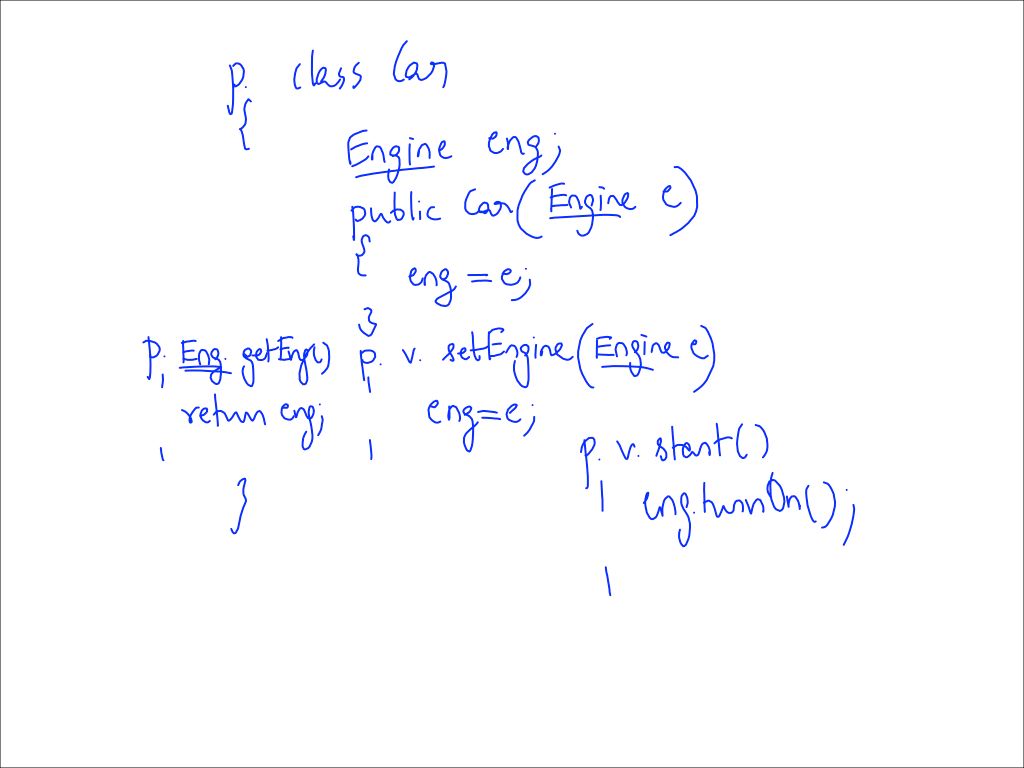 p. class Car
{
Engine eng;
public Car(Engine e)
{
eng = e;
}
p. Eng. getEng() p. v. setEngine(Engine e)
return eng; eng=e;
p. v. start()
eng.turnOn();
}